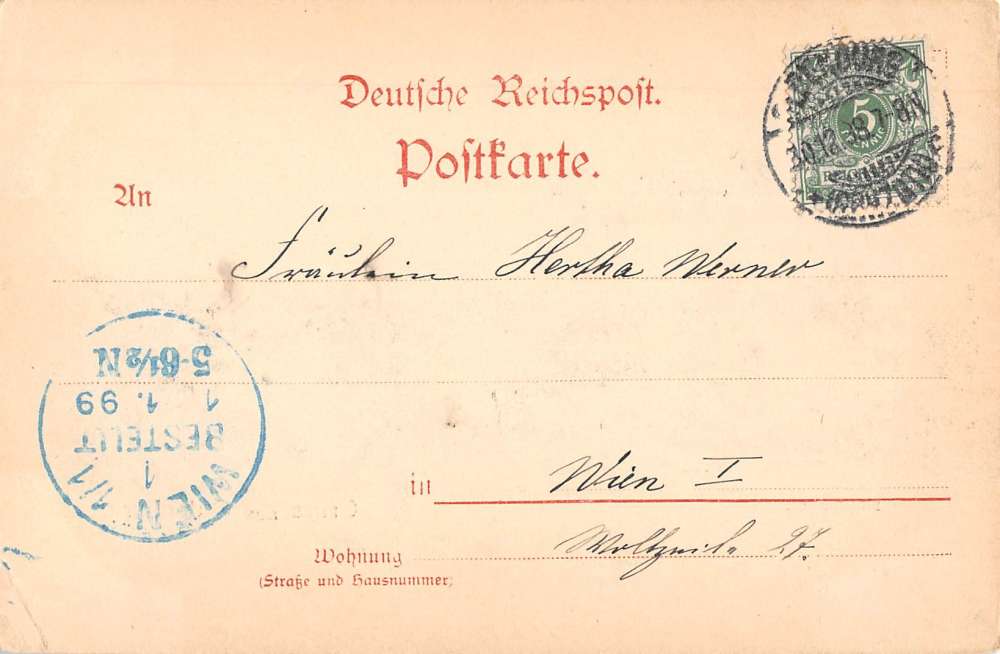 Deutsche Reichspost.
Postkarte.
5
PFENNIG
30.12.98 7-8N
An
Fräulein Hertha Werner
5-6½N
1. 1. 99
BESTELLT
1
WIEN 1/1
in Wien I
Wohnung
(Straße und Hausnummer)
Wollzeile 27.